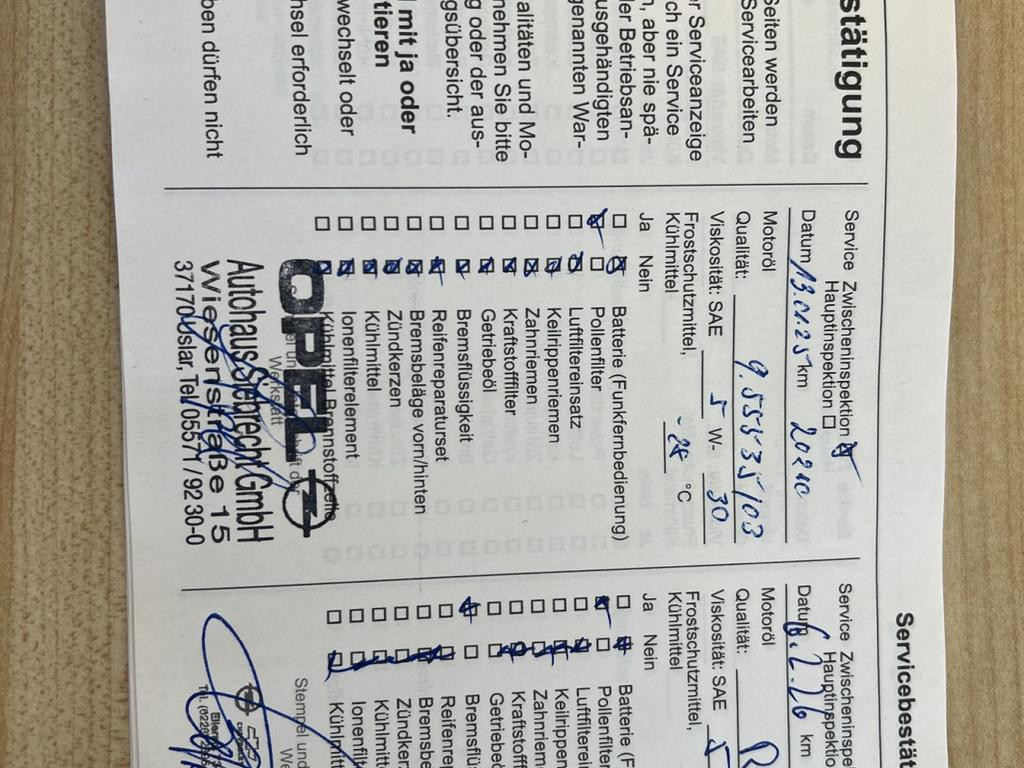 stätigung
Seiten werden
Servicearbeiten
r Serviceanzeige
ch ein Service
n, aber nie spä-
der Betriebsan-
usgehändigten
genannten War-
alitäten und Mo-
nehmen Sie bitte
g oder der aus-
gsübersicht.
l mit ja oder
tieren
wechselt oder
hsel erforderlich
ben dürfen nicht
Service Zwischeninspektion
Hauptinspektion
Datum 13.01.25 km 20210
Motoröl
Qualität: 9.55535/03
Viskosität: SAE 5 W- 30
Frostschutzmittel,
Kühlmittel -28 °C
Ja Nein
Batterie (Funkfernbedienung)
Pollenfilter
Luftfiltereinsatz
Keilrippenriemen
Zahnriemen
Kraftstofffilter
Getriebeöl
Bremsflüssigkeit
Reifenreparaturset
Bremsbeläge vorn/hinten
Zündkerzen
Kühlmittel
Ionenfilterelement
Kühlmittel Brennstoffzelle
OPEL
Werkstatt
Autohaus Siebrecht GmbH
Wiesenstraße 15
37170 Uslar, Tel. 05571 / 92 30-0
Servicebestät
Service Zwischeninspe
Hauptinspektio
Datum 6.2.26 km
Motoröl
Qualität:
Viskosität: SAE 5
Frostschutzmittel,
Kühlmittel
Ja Nein
Batterie (F
Pollenfilter
Luftfilterein
Keilrippen
Zahnriem
Kraftstofff
Getriebeö
Bremsflüs
Reifenrep
Bremsbe
Zündker
Kühlmitt
Ionenfilt
Kühlmitt
Stempel und
We